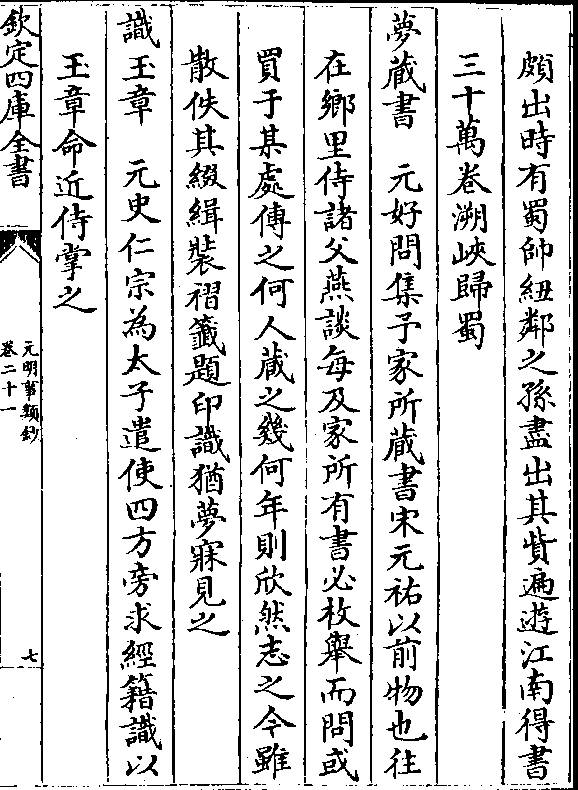 頗出時有蜀帥紐鄰之孫盡出其貲遍遊江南得書
三十萬卷溯峽歸蜀
夢蔵書　元好問集予家所蔵書宋元祐以前物也往
在鄉里侍諸父燕談每及家所有書必枚舉而問或
買于某處傳之何人蔵之幾何年則欣然志之今雖
散佚其綴緝裝褶籖題印識猶夢寐見之
識玉章　元史仁宗為太子遣使四方旁求經籍識以
玉章命近侍掌之
欽定四庫全書
元明事類鈔
卷二十一
七